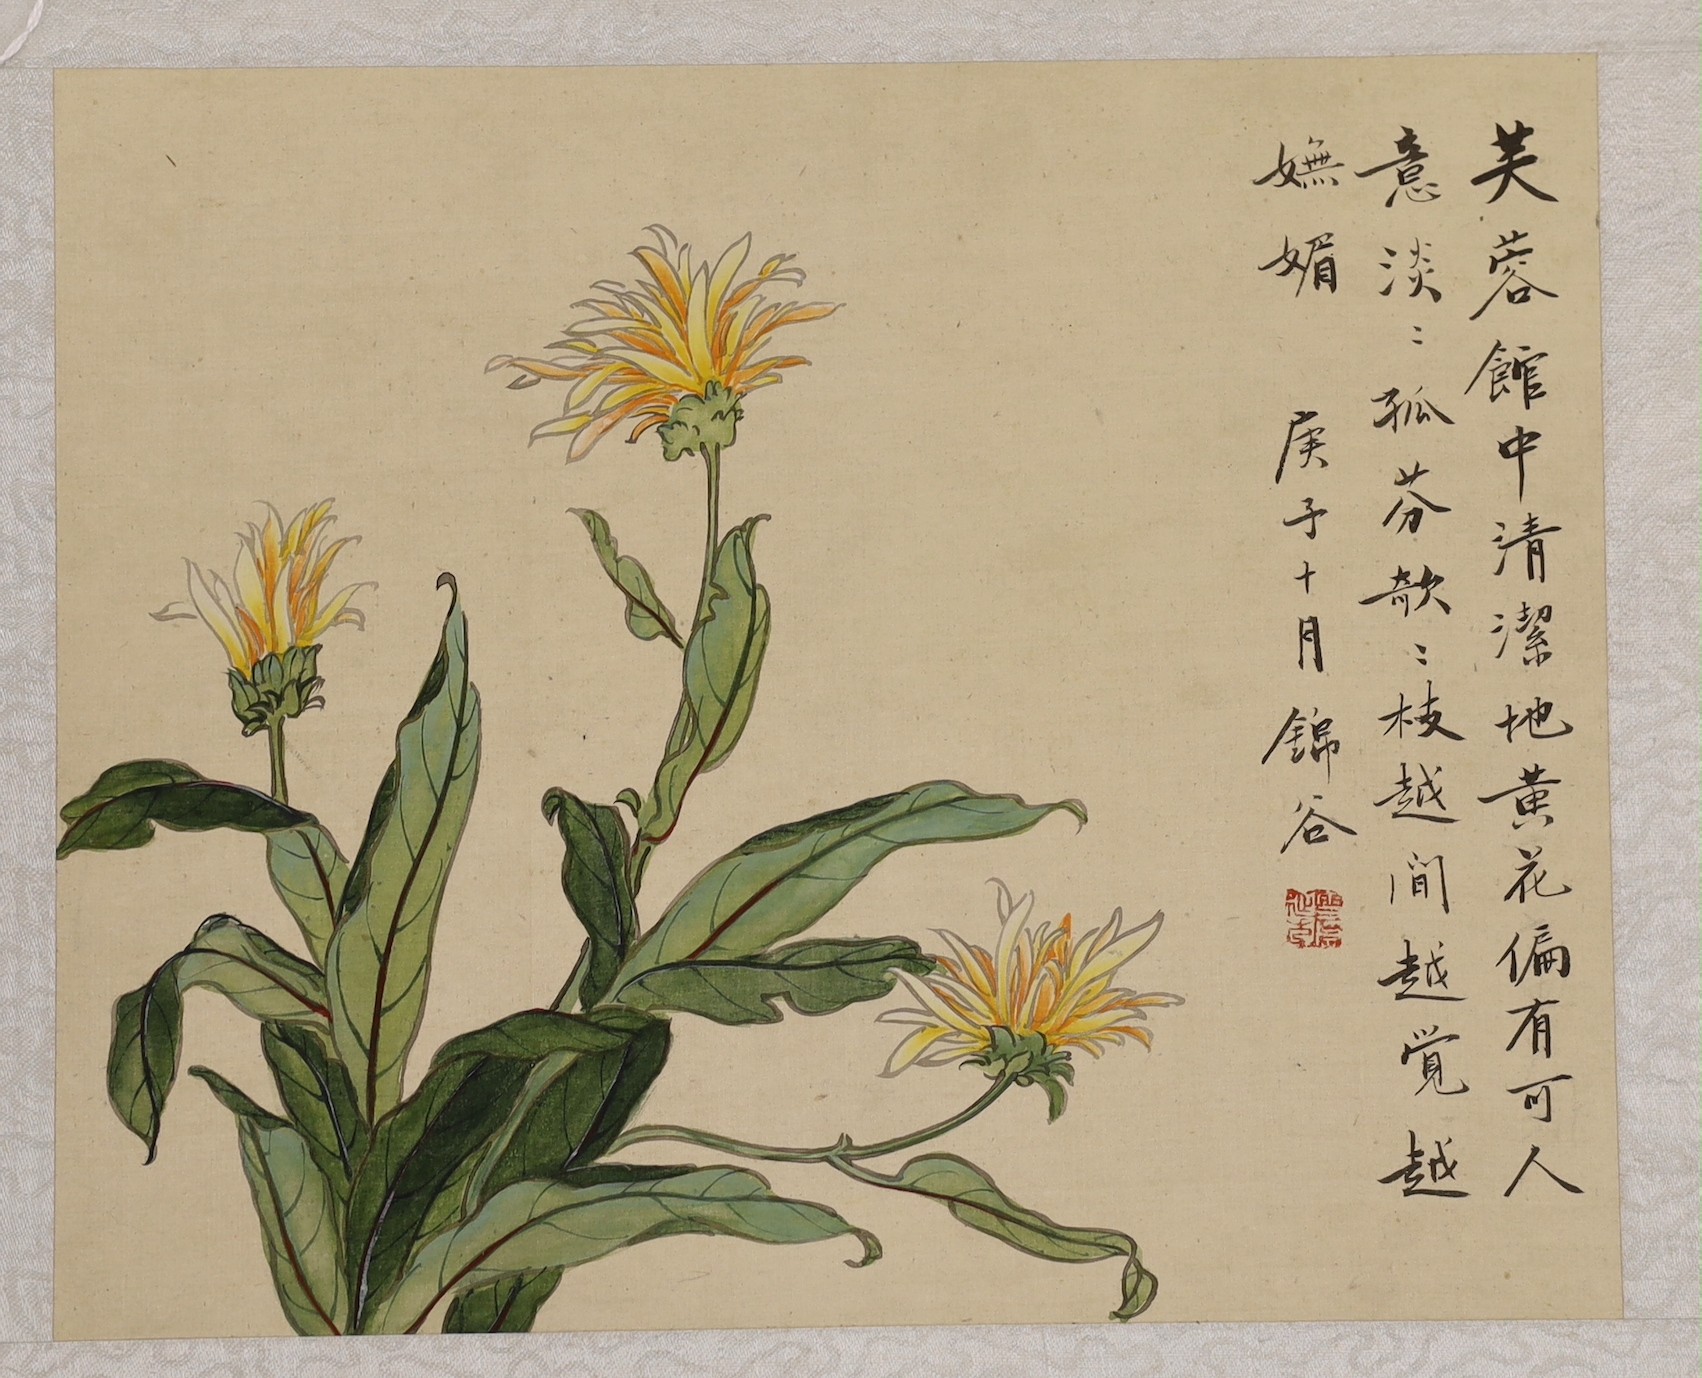 芙蓉館中清潔地黄花偏有可人
意淡〻孤芬欹〻枝越間越覺越
嫵媚 庚子十月錦谷